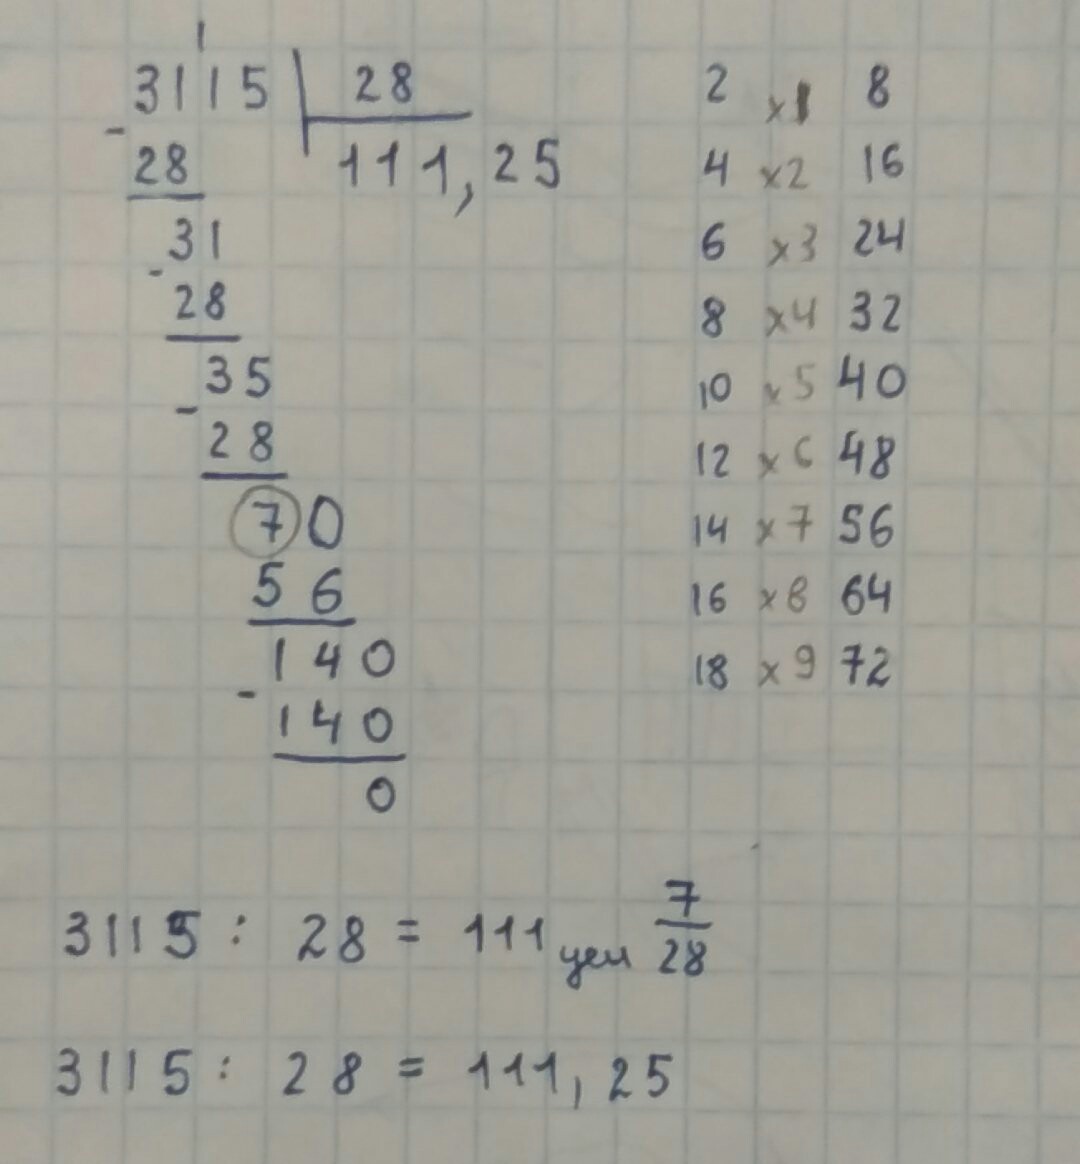 1
3115 28
- 28 111,25
31
- 28
35
- 28
70
56
140
- 140
0
2 x1 8
4 x2 16
6 x3 24
8 x4 32
10 x5 40
12 x6 48
14 x7 56
16 x8 64
18 x9 72
3115 : 28 = 111 цел 7/28
3115 : 28 = 111,25